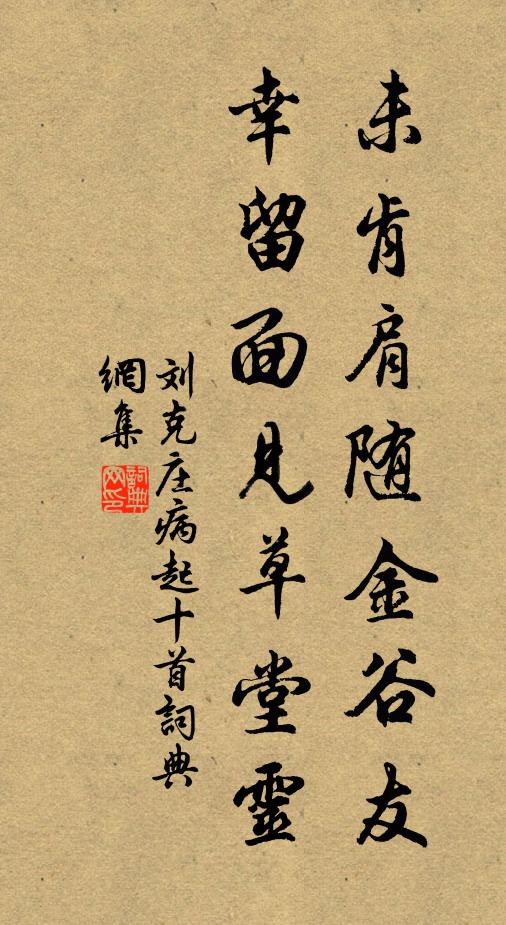 未肯肩随金谷友
幸留面见草堂靈
刘克庄病起十首詞典
網集
詞典
网印